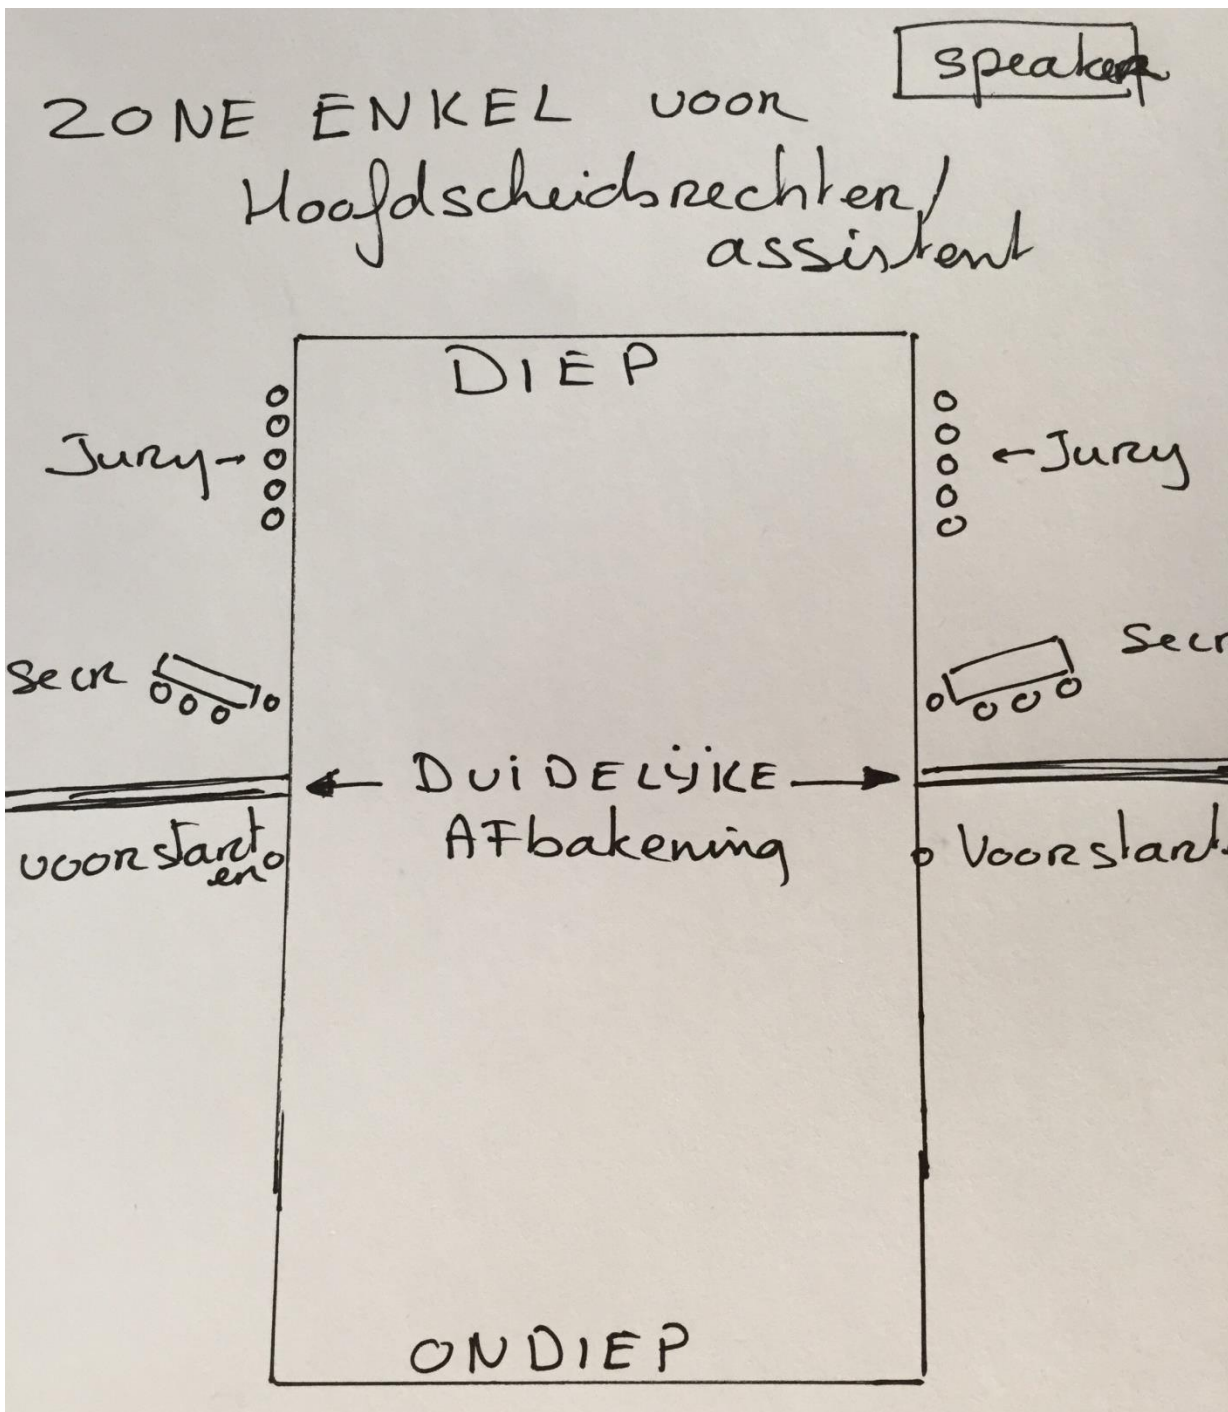 speaker
ZONE ENKEL voor
Hoofdscheidsrechter/
assistent
DIEP
Jury
Jury
Secr
Secr
DUIDELIJKE
AFbakening
voorstart
en
Voorstart
ONDIEP